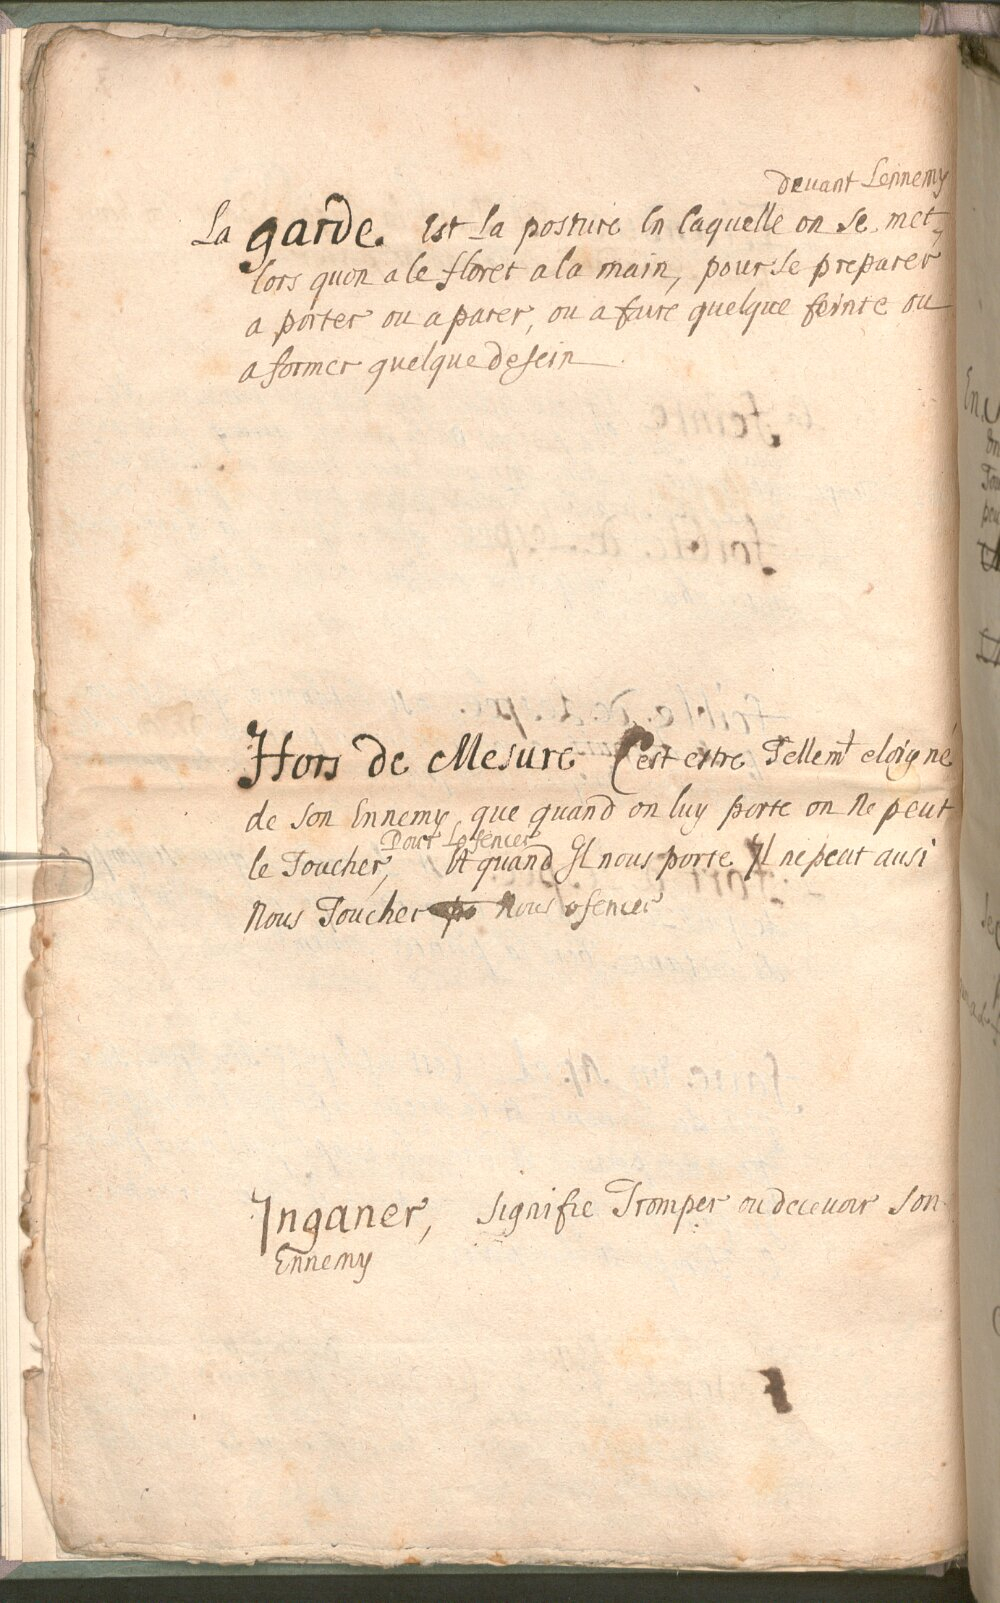 devant Lennemy
La garde. Est La posture En laquelle on se met,
lors quon a le floret a la main, pour se preparer
a porter ou a parer, ou a faire quelque feinte ou
a former quelque desein
Hors de Mesure C'est estre Tellemt eloigné
de son Ennemy, que quand on luy porte on Ne peut
Pour Lofencer
le Toucher, Et quand Il nous porte Il ne peut ausi
Nous Toucher Nous ofencer
Inganer, signifie Tromper ou decevoir son
Ennemy